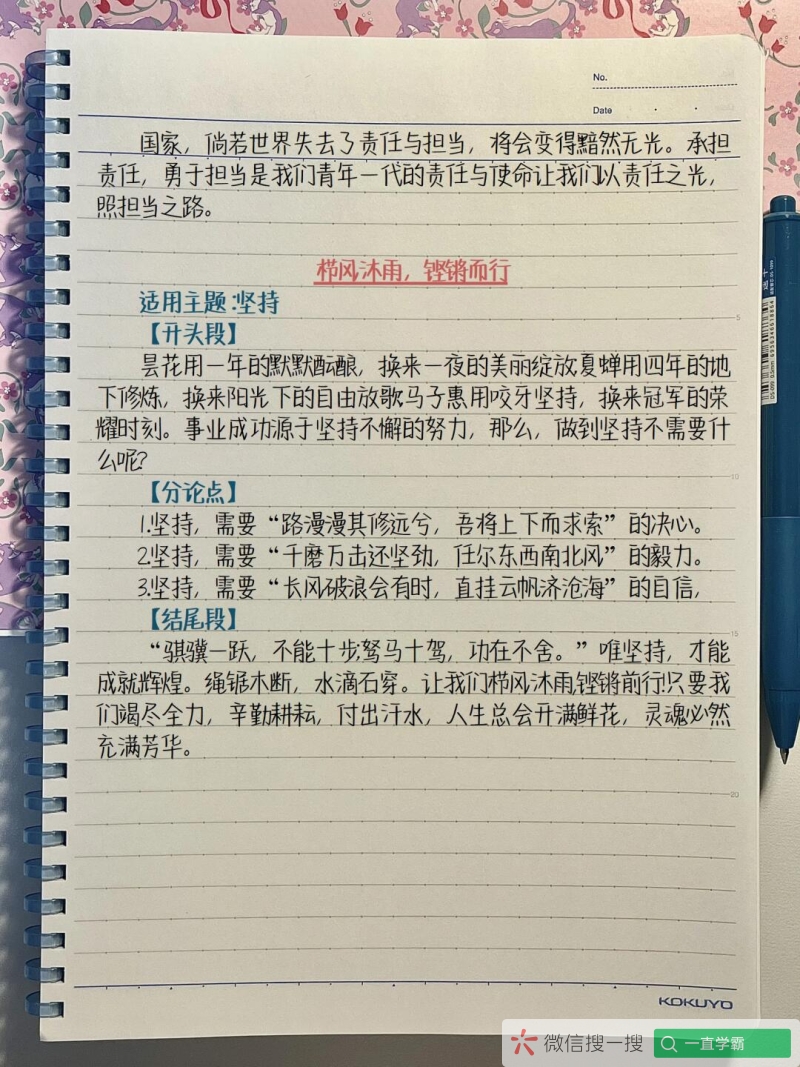 No.
Date
国家，倘若世界失去了责任与担当，将会变得黯然无光。承担
责任，勇于担当是我们青年一代的责任与使命让我们以责任之光，
照担当之路。
栉风沐雨，铿锵而行
适用主题:坚持
【开头段】
昙花用一年的默默酝酿，换来一夜的美丽绽放夏蝉用四年的地
下修炼，换来阳光下的自由放歌马子惠用咬牙坚持，换来冠军的荣
耀时刻。事业成功源于坚持不懈的努力，那么，做到坚持不需要什
么呢?
【分论点】
1.坚持，需要“路漫漫其修远兮，吾将上下而求索”的决心。
2.坚持，需要“千磨万击还坚劲，任尔东西南北风”的毅力。
3.坚持，需要“长风破浪会有时，直挂云帆济沧海”的自信，
【结尾段】
“骐骥一跃，不能十步;驽马十驾，功在不舍。”唯坚持，才能
成就辉煌。绳锯木断，水滴石穿。让我们栉风沐雨,铿锵前行!只要我
们竭尽全力，辛勤耕耘，付出汗水，人生总会开满鲜花，灵魂必然
充满芳华。
5
10
15
20
KOKUYO
微信搜一搜
一直学霸